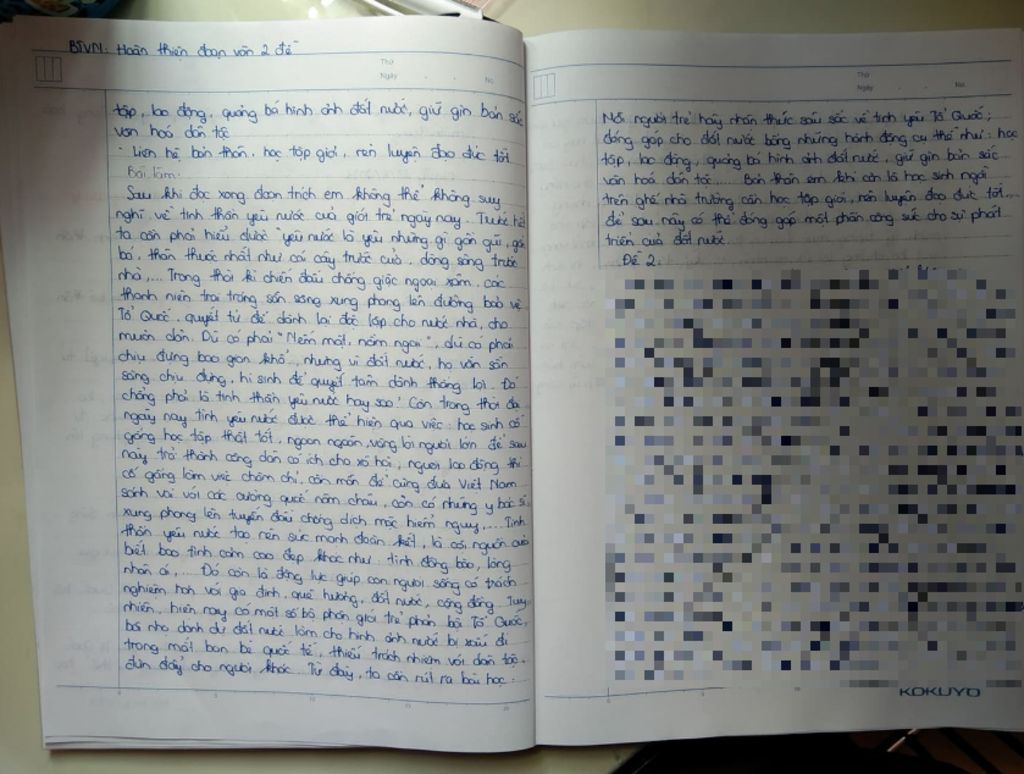 BTVN: Hoàn thiện đoạn văn 2 đề
Thứ
Ngày . . No.
tập, lao động, quảng bá hình ảnh đất nước, giữ gìn bản sắc
văn hoá dân tộc
- Liên hệ bản thân: học tập giỏi, rèn luyện đạo đức tốt
Bài làm:
Sau khi đọc xong đoạn trích em không thể không suy
nghĩ về tinh thần yêu nước của giới trẻ ngày nay. Trước hết
ta cần phải hiểu được "yêu nước là yêu những gì gần gũi, gắn
bó, thân thuộc nhất như cái cây trước cửa, dòng sông trước
nhà,... Trong thời kì chiến đấu chống giặc ngoại xâm, các
thanh niên trai tráng sẵn sàng xung phong lên đường bảo vệ
Tổ Quốc, quyết tử để dành lại độc lập cho nước nhà, cho
muôn dân. Dù có phải "Nếm mật, nằm ngai", dù có phải
chịu đựng bao gian khổ, nhưng vì đất nước, họ vẫn sẵn
sàng chịu đựng, hi sinh để quyết tâm dành thắng lợi. Đó
chẳng phải là tinh thần yêu nước hay sao! Còn trong thời đại
ngày nay tình yêu nước được thể hiện qua việc: học sinh cố
gắng học tập thật tốt, ngoan ngoãn, vâng lời người lớn để sau
này trở thành công dân có ích cho xã hội, người lao động thì
cố gắng làm việc chăm chỉ, cần mẫn để cùng đưa Việt Nam
sánh vai với các cường quốc năm châu, còn có những y bác sĩ
xung phong lên tuyến đầu chống dịch mặc hiểm nguy,.... Tinh
thần yêu nước tạo nên sức mạnh đoàn kết, là cội nguồn của
biết bao tình cảm cao đẹp khác như: tình đồng bào, lòng
nhân ái,.... Đó còn là động lực giúp con người sống có trách
nghiệm hơn với gia đình, quê hương, đất nước, cộng đồng. Tuy
nhiên, hiện nay có một số bộ phận giới trẻ phản bội Tổ Quốc,
bôi nhọ danh dự đất nước làm cho hình ảnh nước bị xấu đi
trong mắt bạn bè quốc tế, thiếu trách nhiệm với dân tộc,
đùn đẩy cho người khác. Từ đây, ta cần rút ra bài học:
Thứ
Ngày . . No.
Mỗi người trẻ hãy nhận thức sâu sắc về tình yêu Tổ Quốc;
đóng góp cho đất nước bằng những hành động cụ thể như: học
tập, lao động, quảng bá hình ảnh đất nước, giữ gìn bản sắc
văn hoá dân tộc,.... Bản thân em khi còn là học sinh ngồi
trên ghế nhà trường cần học tập giỏi, rèn luyện đạo đức tốt...
để sau này có thể đóng góp một phần công sức cho sự phát
triển của đất nước.
Đề 2:
KOKUYO